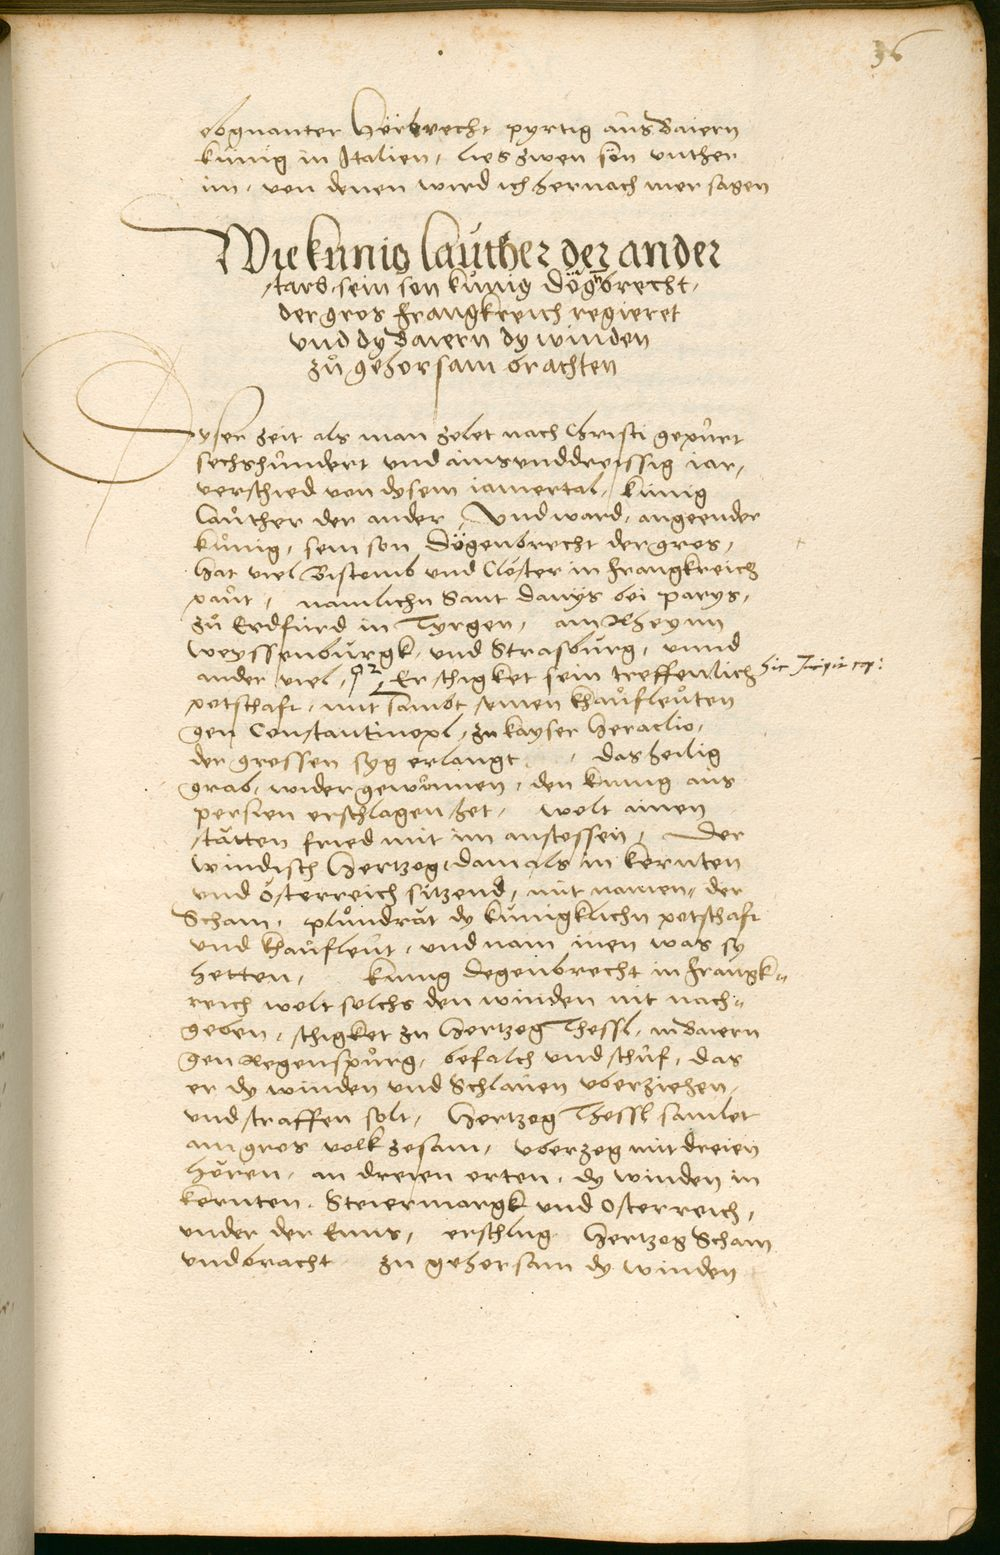 36
obgnanter Herbrecht pyrtig aus Baiern
künig in Italien, lies zwen sön vnther
im, von denen wird ich hernach mer sagen
Wie künig Lauther der ander
starb, sein son künig Dögnbrecht,
der gros Frangkreich regieret
vnd dy Baiern dy winden
zů gehorsam brachten
Dyser zeit als man zelet nach Christi gepůrt
sechshůndert vnd ainsunddreissig iar,
verschied von dysem iamertal, künig
Lauther der ander, Vnd ward, angeender
künig, sein son Dögenbrecht der gros,
hat viel Bistomb vnd Clöster in Frangkreich
paůt, namlichn Sant Danys bei Parys,
zů Erdfurd in Tyrgen, am Rheynn
Weyssenbůrgk, vnd Strasbůrg, vnnd
ander viel, Er schigket sein treffenlich
hie Incipit cap:
potschaft, mit sambt seinen khaůfleůten
gen Constantinopl, zu kayser Heraclio,
der grossen syg erlangt, das heilig
grab, wider gewůnnen, den künig aus
Persien erschlagen het, wolt ainen
stätten fried mit im anstossen, Der
windisch Hertzog, damals in Kernten
vnd Osterreich sitzend, mit namen, der
Scham, plůndrät dy künigklichn potschaft
vnd khaůfleůt, vnd nam inen was sy
hetten, künig Degenbrecht in Frangk-
reich wolt solchs den winden nit nach-
geben, schigket zu Hertzog Thessl, in Baiern
gen Regenspůrg, befalch vnd schůf, das
er dy winden vnd Schlauen vberziehen,
vnd straffen solt, Hertzog Thessl samlet
ain gros volk zesam, vberzog mit dreien
hören, an dreien orten, dy winden in
Kernten, Steiermargk vnd Osterreich,
vnder der Enns, erschlug Hertzog Scham
vnd bracht zu gehorsam dy winden